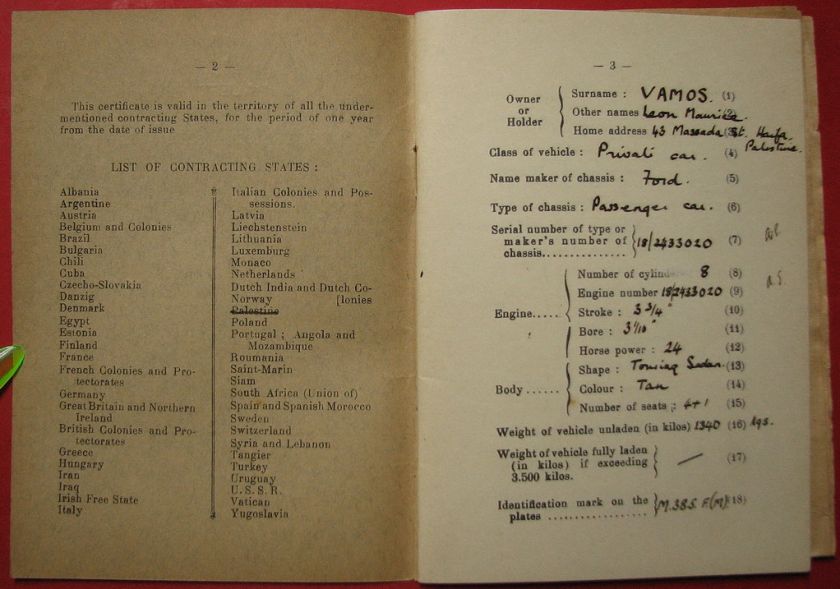 — 2 —
This certificate is valid in the territory of all the under-
mentioned contracting States, for the period of one year
from the date of issue
LIST OF CONTRACTING STATES :
Albania
Argentine
Austria
Belgium and Colonies
Brazil
Bulgaria
Chili
Cuba
Czecho-Slovakia
Danzig
Denmark
Egypt
Estonia
Finland
France
French Colonies and Pro-
tectorates
Germany
Great Britain and Northern
Ireland
British Colonies and Pro-
tectorates
Greece
Hungary
Iran
Iraq
Irish Free State
Italy
Italian Colonies and Pos-
sessions.
Latvia
Liechstenstein
Lithuania
Luxemburg
Monaco
Netherlands
Dutch India and Dutch Co-
Norway [lonies
Palestine
Poland
Portugal ; Angola and
Mozambique
Roumania
Saint-Marin
Siam
South Africa (Union of)
Spain and Spanish Morocco
Sweden
Switzerland
Syria and Lebanon
Tangier
Turkey
Uruguay
U. S. S. R.
Vatican
Yugoslavia
— 3 —
Owner
or
Holder
Surname : VAMOS. (1)
Other names Leon Maurice. (2)
Home address 43 Massada St. Haifa (3)
Palestine.
Class of vehicle : Privati car. (4)
Name maker of chassis : Ford. (5)
Type of chassis : Passenger car. (6)
Serial number of type or
maker's number of 18/2433020 (7)
chassis...............
Engine.....
Number of cylind 8 (8)
Engine number 18/2433020 (9)
Stroke : 3 3/4" (10)
Bore : (11)
Horse power : 24 (12)
Body ......
Shape : Touring Sedan. (13)
Colour : Tan (14)
Number of seats : 4+1 (15)
Weight of vehicle unladen (in kilos) 1340 (16) kgs.
Weight of vehicle fully laden
(in kilos) if exceeding — (17)
3.500 kilos.
Identification mark on the
plates .................. M.385. F.(M) (18)